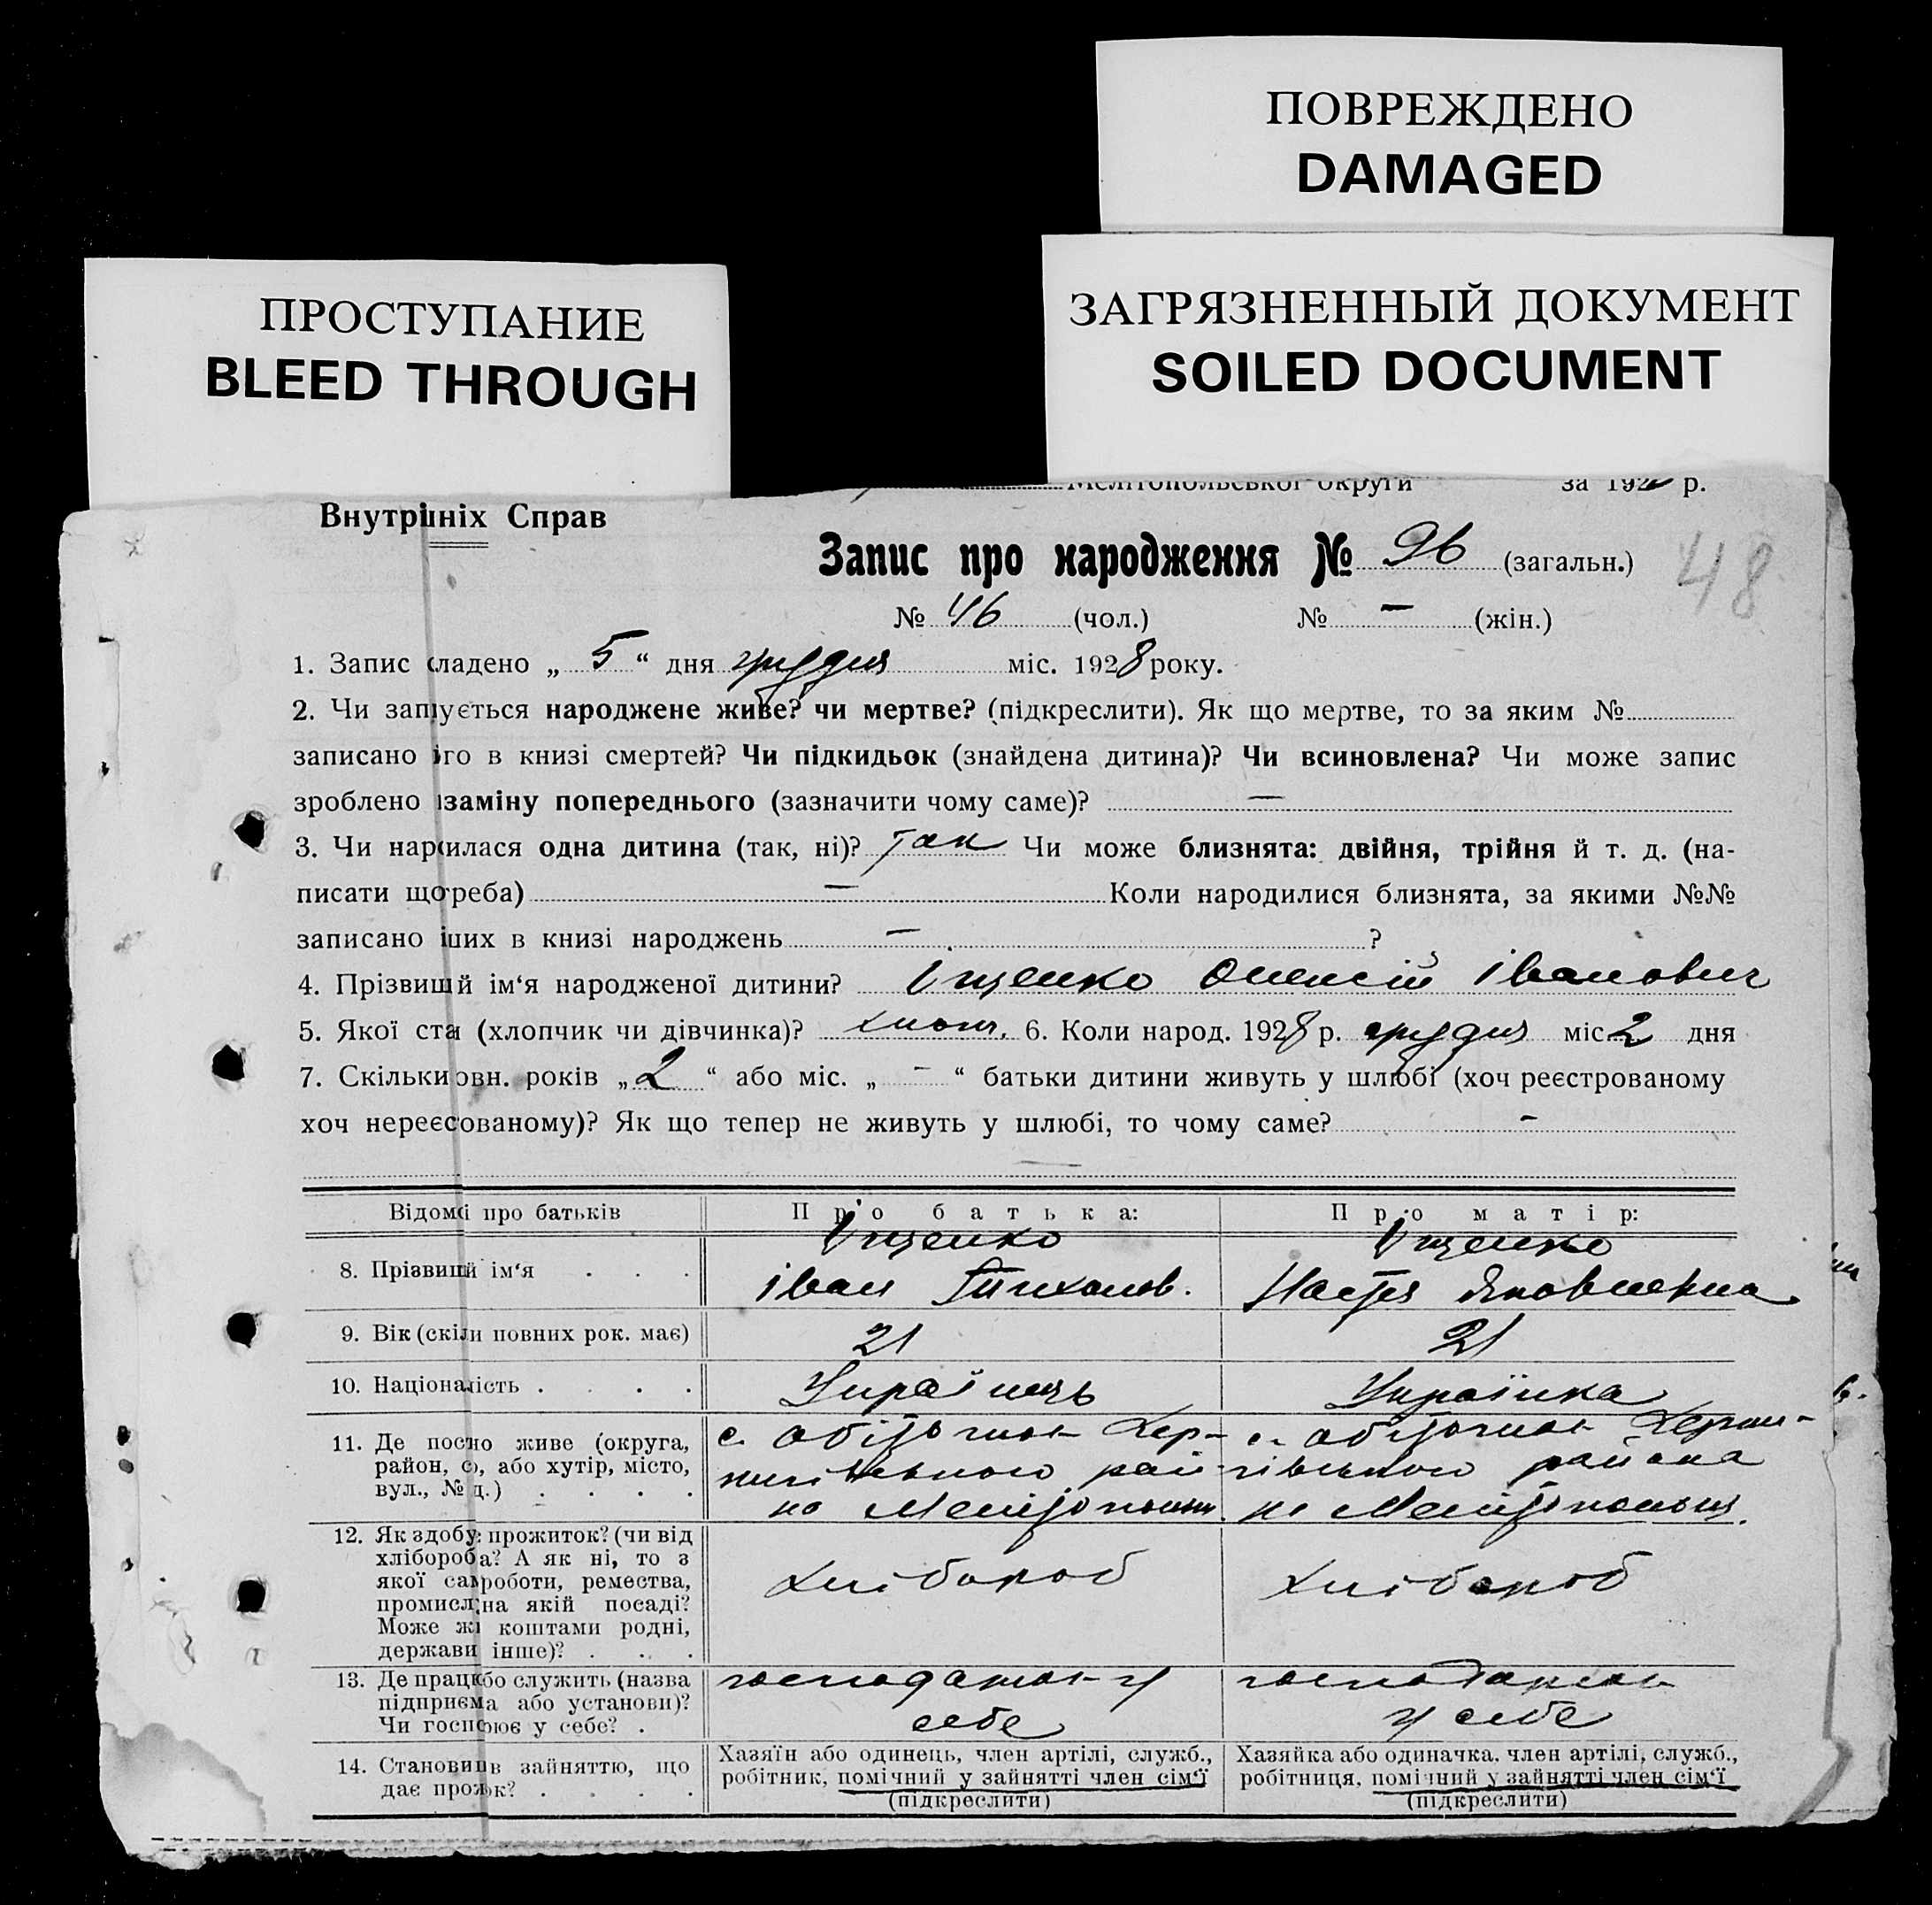 ПОВРЕЖДЕНО
DAMAGED
ПРОСТУПАНИЕ
BLEED THROUGH
ЗАГРЯЗНЕННЫЙ ДОКУМЕНТ
SOILED DOCUMENT
Мелітопольської округи за 192 р.
Внутрішніх Справ
Запис про народження № 96 (загальн.)
48
№ 46 (чол.) № — (жін.)
1. Запис складено „ 5 “ дня грудня міс. 1928 року.
2. Чи записується народжене живе? чи мертве? (підкреслити). Як що мертве, то за яким №
записано його в книзі смертей? Чи підкидьок (знайдена дитина)? Чи всиновлена? Чи може запис
зроблено взаміну попереднього (зазначити чому саме)? —
3. Чи народилася одна дитина (так, ні)? так Чи може близнята: двійня, трійня й т. д. (на-
писати що треба) — Коли народилися близнята, за якими №№
записано інших в книзі народжень — ?
4. Прізвище й ім‘я народженої дитини? Іщенко Олексій Іванович
5. Якої статі (хлопчик чи дівчинка)? хлопч. 6. Коли народ. 1928 р. грудня міс. 2 дня
7. Скільки повн. років „ 2 “ або міс. „ - “ батьки дитини живуть у шлюбі (хоч реєстрованому
хоч нереєстрованому)? Як що тепер не живуть у шлюбі, то чому саме? -
Відомості про батьків Про батька: Про матір:
8. Прізвище й ім‘я . . . Іщенко Іщенко
Іван Тихонов. Настя Яковлевна
9. Вік (скільки повних рок. має) 21 21
10. Національність . . . . Українець Українка
11. Де постійно живе (округа, район, село, або хутір, місто, вул., № д.) . . . .
с. Обіточне Чер-
нигівського рай-
на Мелітопольщ.
с. Обіточне Черни-
гівського района
на Мелітопольщ.
12. Як здобуває прожиток? (чи від
хлібороба? А як ні, то з
якої саме роботи, ремества,
промислу, на якій посаді?
Може живе коштами родні,
держави інше)? . . .
Хлібороб Хлібороб
13. Де працює або служить (назва
підприємства або установи)?
Чи господарює у себе? .
господарює у
себе
господарює
у себе
14. Становище в зайняттю, що
дає прожиток? . . . .
Хазяїн або одинець, член артілі, служб.,
робітник, помічний у зайнятті член сім‘ї
(підкреслити)
Хазяйка або одиначка. член артілі, служб.,
робітниця, помічний у зайнятті член сім‘ї
(підкреслити)